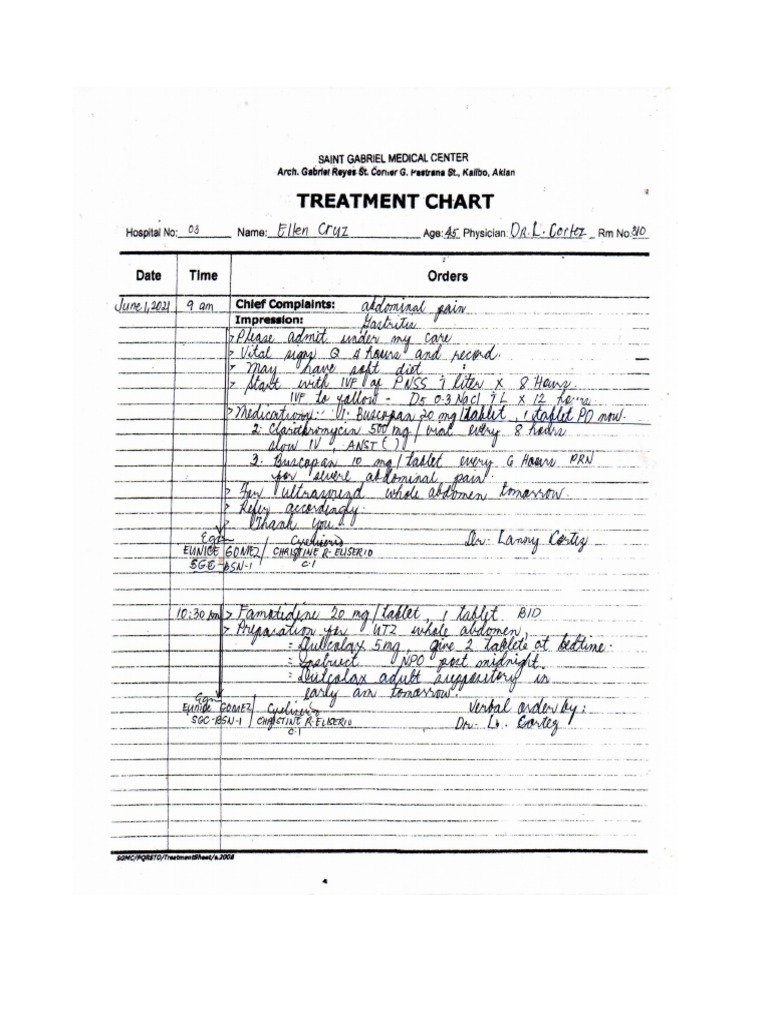 SAINT GABRIEL MEDICAL CENTER
Arch. Gabriel Reyes St. Corner G. Pastrana St., Kalibo, Aklan
TREATMENT CHART
Hospital No: 03 Name: Ellen Cruz Age: 45 Physician: DR. L. Cortez Rm No 310
Date Time Orders
June 1, 2021 9 am Chief Complaints: abdominal pain
Impression: Gastritis
> Please admit under my care
> Vital signs Q 4 hours and record.
> May have soft diet
> Start with IVF of PNSS 1 liter x 8 Hours.
IVF to follow - D5 0.3 NaCl 1 L x 12 hours
> Medications: 1. Buscopan 20 mg/tablet, 1 tablet PO now.
2. Clarithromycin 500 mg/vial every 8 hours
slow IV, ANST ( )
3. Buscopan 10 mg/tablet every 6 Hours PRN
for severe abdominal pain.
> For ultrasound whole abdomen tomorrow.
> Refer accordingly.
> Thank you.
Dr. Lanny Cortez
EUNICE GOMEZ / CHRISTINE R. ELISERIO
SGC-BSN-1 C.I
10:30 am > Famotidine 20 mg/tablet, 1 tablet BID
> Preparation for UTZ whole abdomen,
= Dulcolax 5mg, give 2 tablets at bedtime.
= Instruct NPO post midnight.
= Dulcolax adult suppository in
early am tomorrow.
EUNICE GOMEZ / Verbal order by:
SGC-BSN-1 CHRISTINE R. ELISERIO Dr. L. Cortez
C.I
SGMC/PQRSTD/TreatmentSheet/s.2008